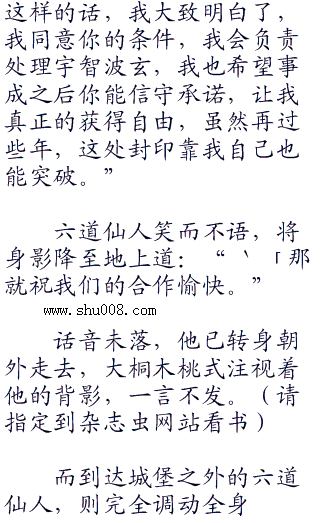 这样的话，我大致明白了，
我同意你的条件，我会负责
处理宇智波玄，我也希望事
成之后你能信守承诺，让我
真正的获得自由，虽然再过
些年，这处封印靠我自己也
能突破。”
六道仙人笑而不语，将
身影降至地上道：“‵「那
就祝我们的合作愉快。”
www.shu008.com
话音未落，他已转身朝
外走去，大桐木桃式注视着
他的背影，一言不发。（请
指定到杂志虫网站看书）
而到达城堡之外的六道
仙人，则完全调动全身